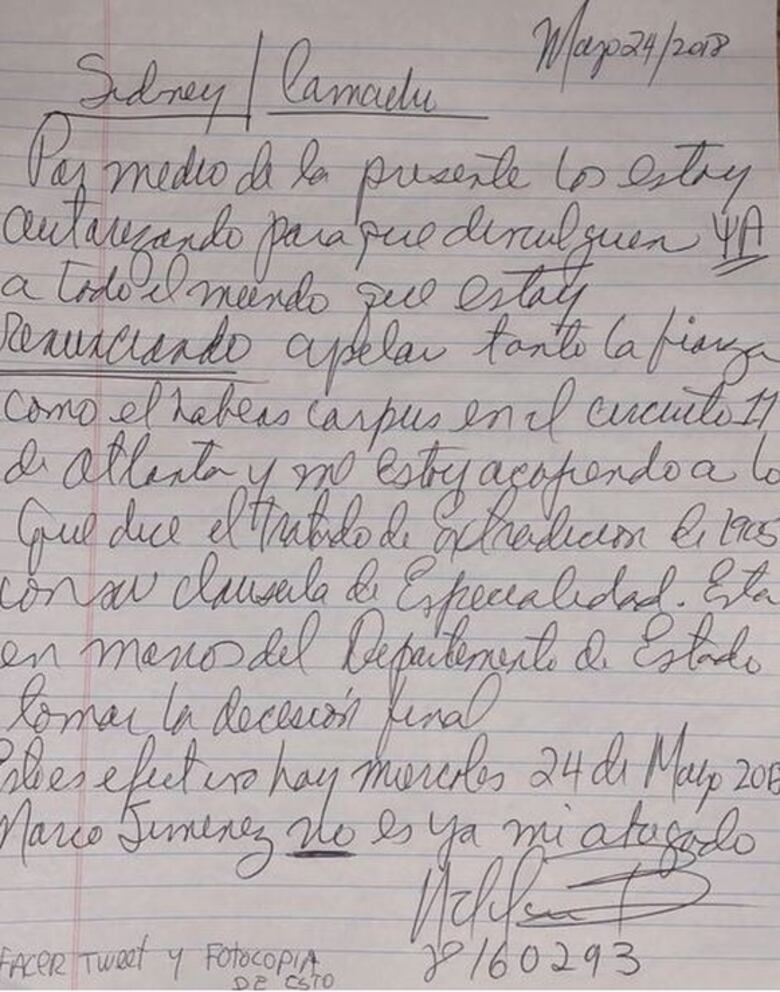 Mayo 24/2018
Sidney / Camadu
Por medio de la presente los estoy
autorizando para que divulguen YA
a todo el mundo que estoy
Renunciando apelar tanto la fianza
como el habeas carpus en el circuito 11
de Atlanta y me estoy acogiendo a lo
que dice el tratado de Extradicion de 1905
con su clausula de Especialidad. Esta
en manos del Departamento de Estado
tomar la decesión final
Esto es efectivo hoy miercoles 24 de Mayo 2018
Marco Jimenez no es ya mi abogado
28160293
FACER TWEET Y FOTOCOPIA
DE ESTO